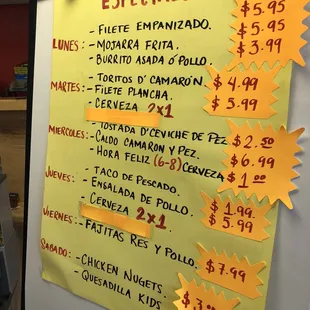 ESPECIALES
- FILETE EMPANIZADO. $5.95
LUNES: - MOJARRA FRITA. $5.95
- BURRITO ASADA Ó POLLO. $3.99
- TORITOS D' CAMARÓN. $4.99
MARTES: - FILETE PLANCHA. $5.99
- CERVEZA 2x1
- TOSTADA D'CEVICHE DE PEZ $2.50
MIERCOLES: - CALDO CAMARON Y PEZ. $6.99
- HORA FELIZ (6-8) CERVEZA $1.00
- TACO DE PESCADO. $1.99
JUEVES: - ENSALADA DE POLLO. $5.99
- CERVEZA 2x1.
VIERNES: - FAJITAS RES Y POLLO. $7.99
SABADO: - CHICKEN NUGETS.
- QUESADILLA KIDS